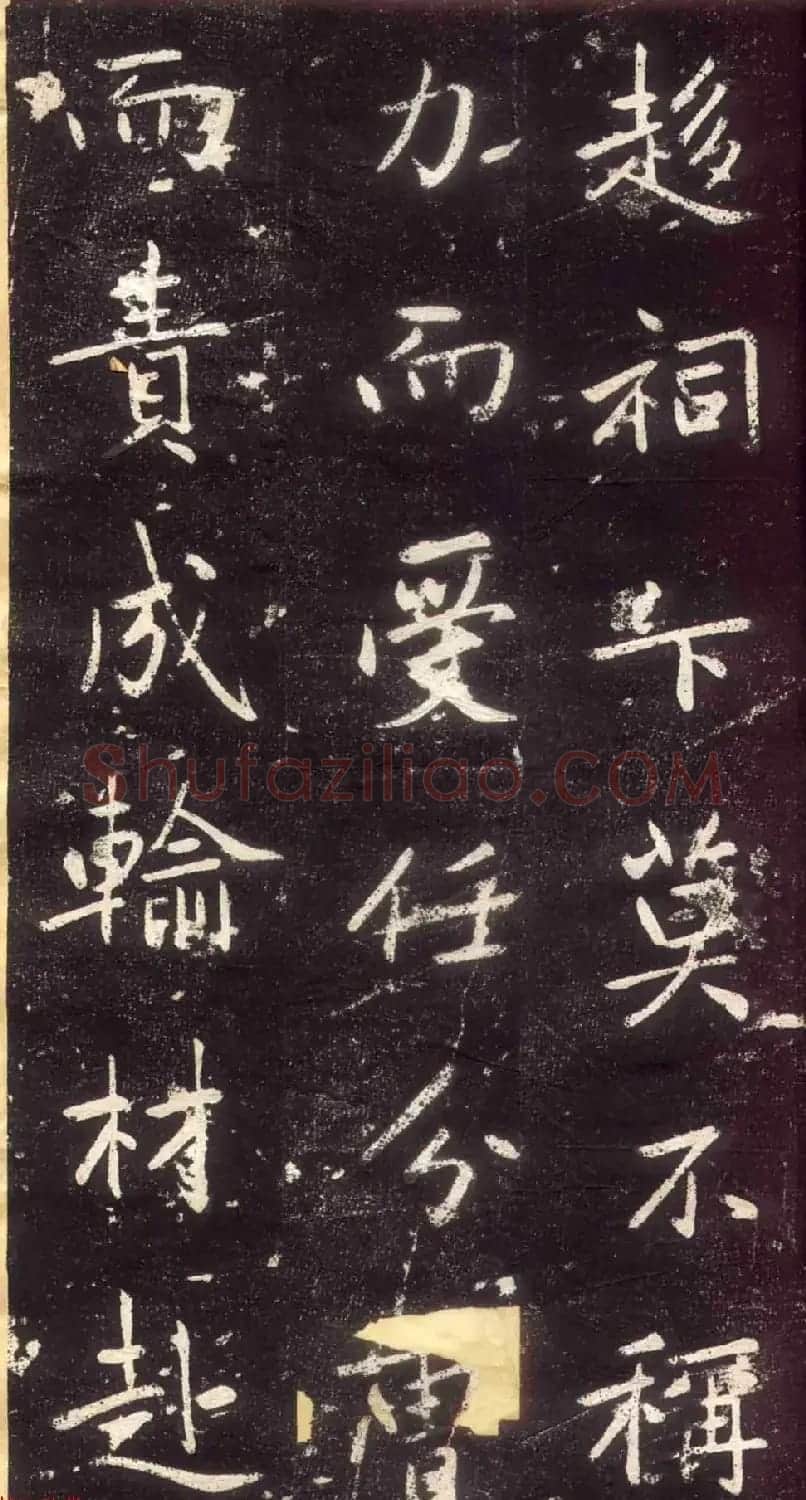 趍祠下莫不稱
力而受任分曹
而責成輪材赴
Shufaziliao.COM